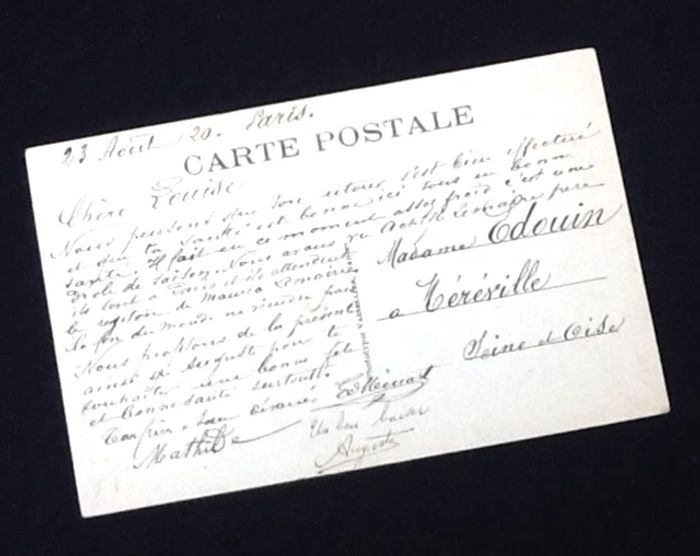 23 Août 20. Paris.
CARTE POSTALE
Chère Louise
Nous pensons que ton retour s'est bien effectué
et que ta santé est bonne ici tous en bonne
santé. Il fait en ce moment assez froid c'est une
drole de saison. Nous avons vu Lemaire père
ils sont à Paris et ils attendent
le de Lemaire
la fin du monde ne viendra pas
Nous profitons de la présente
ainsi pour te
souhaiter une bonne fête
et bonne santé surtout.
Ton frère, sœur
Mathilde
Un bon baiser
Auguste
Madame Edouin
a Téréville
Seine et Oise